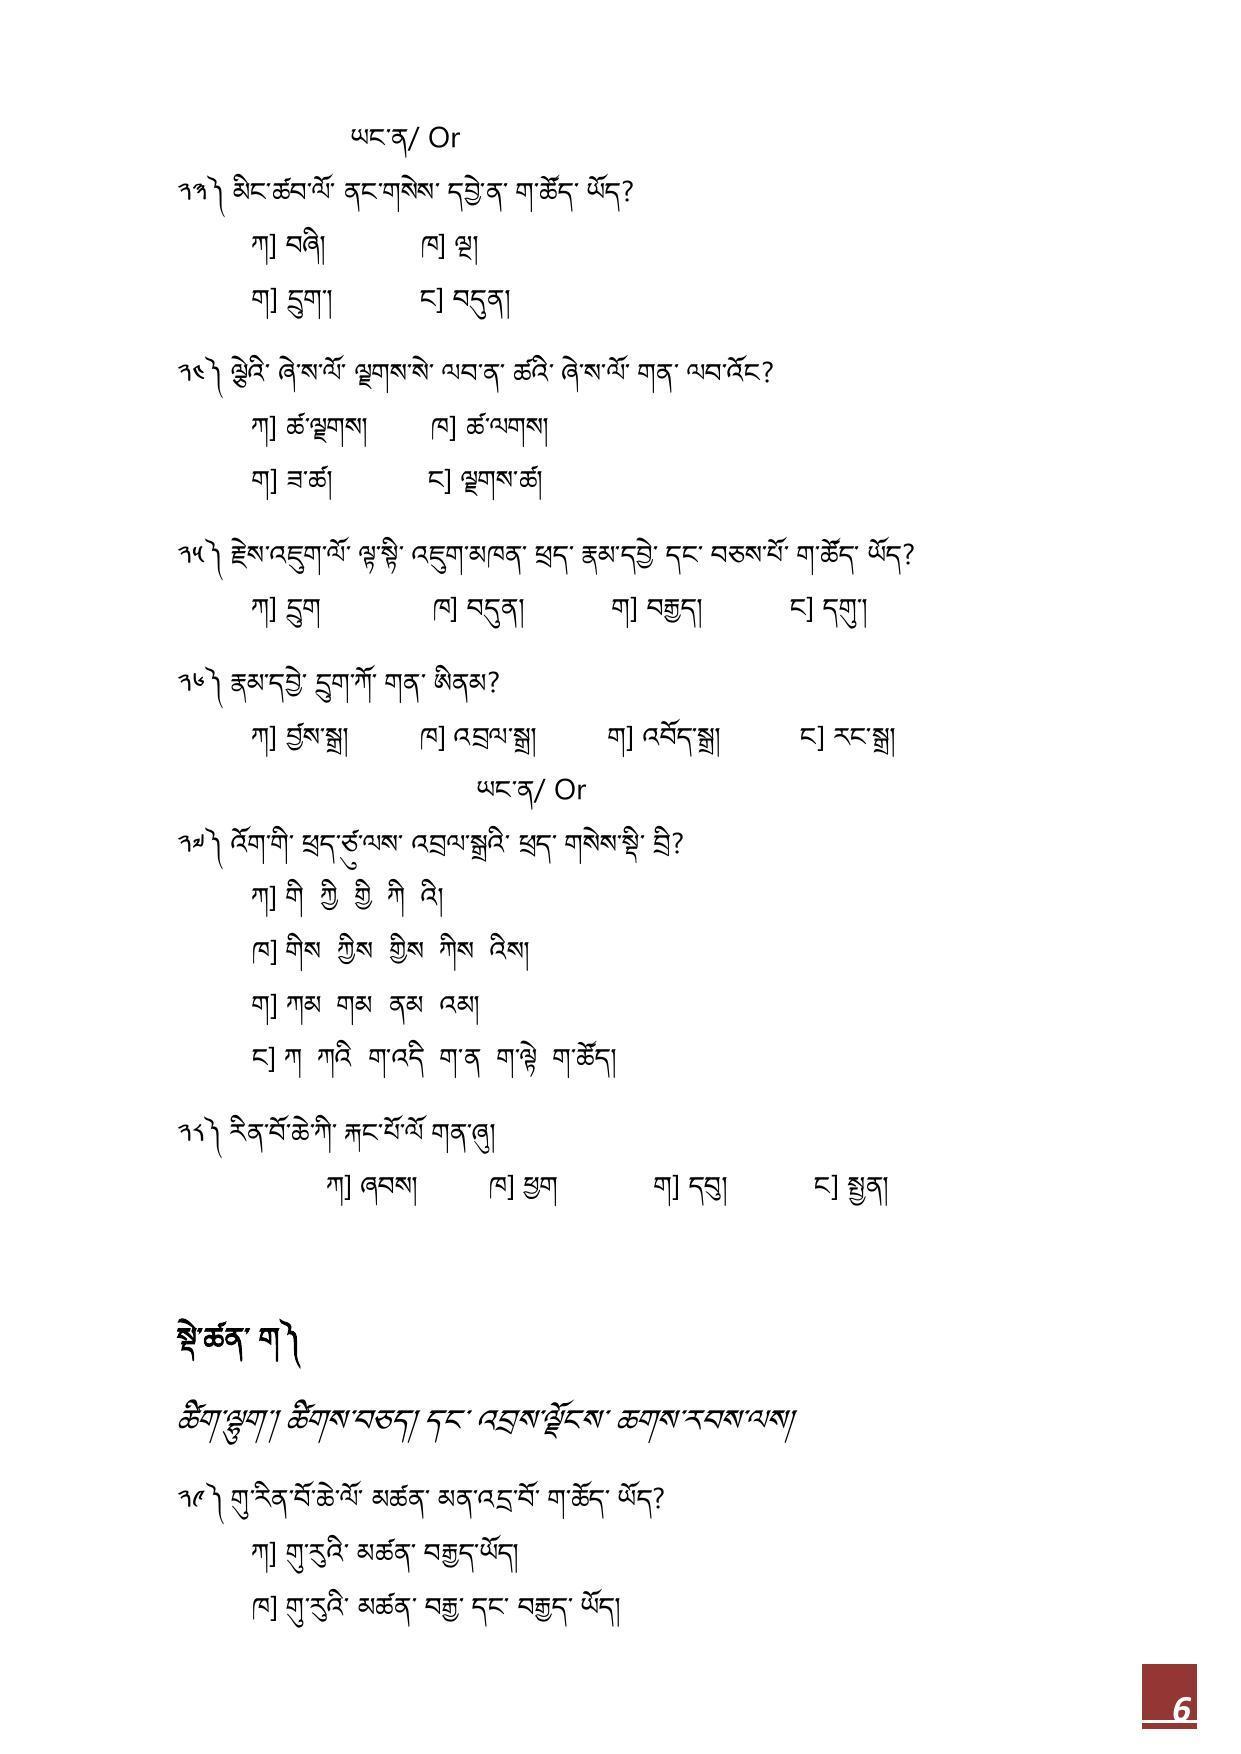 ཡང་ན/ Or
༢༣༽ མིང་ཚབ་ལོ་ ནང་གསེས་ དབྱེ་ན་ ག་ཚོད་ ཡོད?
ཀ] བཞི། ཁ] ལྔ།
ག] དྲུག་། ང] བདུན།
༢༤༽ ལྕེའི་ ཞེ་ས་ལོ་ ལྗགས་སེ་ ལབ་ན་ ཚའི་ ཞེ་ས་ལོ་ གན་ ལབ་འོང?
ཀ] ཚ་ལྗགས། ཁ] ཚ་ལགས།
ག] ཟ་ཚ། ང] ལྗགས་ཚ།
༢༥༽ རྗེས་འཇུག་ལོ་ ལྟ་སྟི་ འཇུག་མཁན་ ཕྲད་ རྣམ་དབྱེ་ དང་ བཅས་པོ་ ག་ཚོད་ ཡོད?
ཀ] དྲུག ཁ] བདུན། ག] བརྒྱད། ང] དགུ་།
༢༦༽ རྣམ་དབྱེ་ དྲུག་ཀོ་ གན་ ཨིནམ?
ཀ] བྱེས་སྒྲ། ཁ] འབྲལ་སྒྲ། ག] འབོད་སྒྲ། ང] རང་སྒྲ།
ཡང་ན/ Or
༢༧༽ འོག་གི་ ཕྲད་ཙུ་ལས་ འབྲལ་སྒྲའི་ ཕྲད་ གསེས་སྡི་ བྲི?
ཀ] གི ཀྱི གྱི ཀི འི།
ཁ] གིས ཀྱིས གྱིས ཀིས འིས།
ག] ཀམ གམ ནམ འམ།
ང] ཀ ཀའི ག་འདི ག་ན ག་ལྟེ ག་ཚོད།
༢༨༽ རིན་བོ་ཆེ་ཀི་ རྐང་པོ་ལོ གན་ཞུ།
ཀ] ཞབས། ཁ] ཕྱག ག] དབུ། ང] སྤྱན།
སྡེ་ཚན་ ག༽
ཚིག་ལྷུག་། ཚིགས་བཅད། དང་ འབྲས་ལྗོངས་ ཆགས་རབས་ལས།
༢༩༽ གུ་རིན་བོ་ཆེ་ལོ་ མཚན་ མན་འདྲ་བོ་ ག་ཚོད་ ཡོད?
ཀ] གུ་རུའི་ མཚན་ བརྒྱད་ཡོད།
ཁ] གུ་རུའི་ མཚན་ བརྒྱ་ དང་ བརྒྱད་ ཡོད།
6